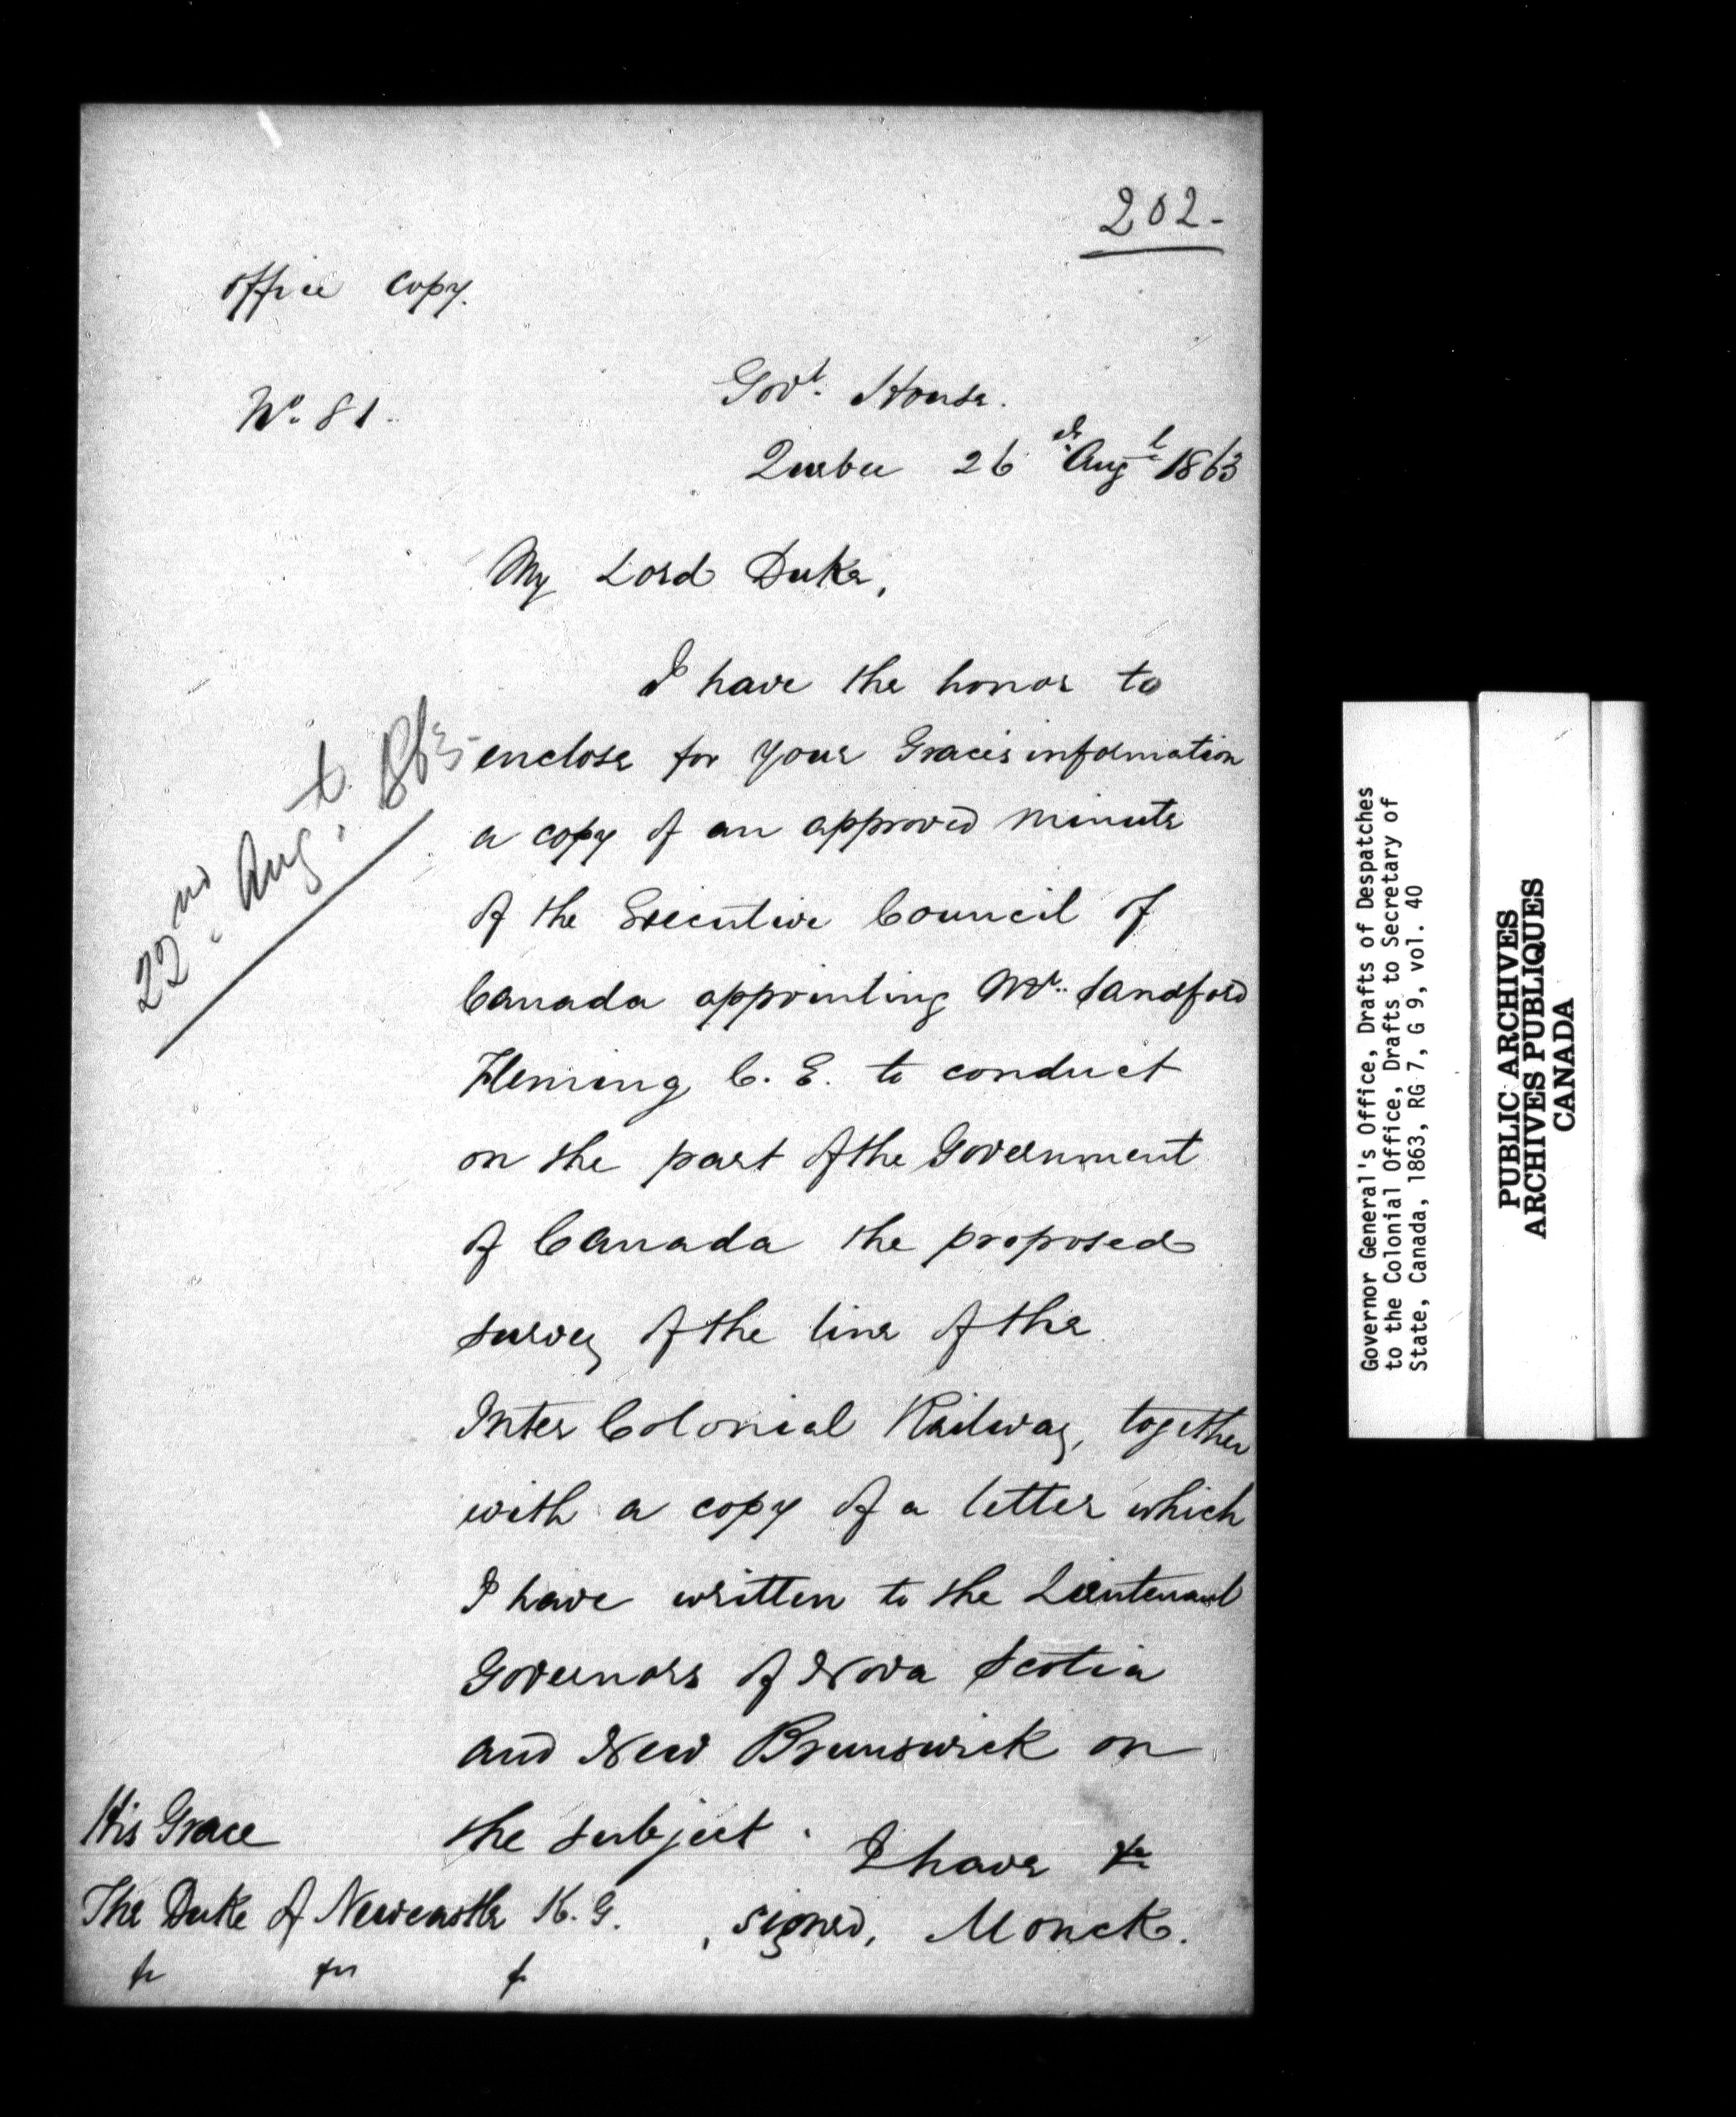 202-
office copy.
No. 81.
Govt. House.
Quebec 26th Augt 1863
My Lord Duke,
I have the honor to
enclose for your Grace's information
a copy of an approved minute
of the Executive Council of
Canada appointing Mr. Sandford
Fleming C. E. to conduct
on the part of the Government
of Canada the proposed
survey of the line of the
Inter Colonial Railway, together
with a copy of a letter which
I have written to the Lieutenant
Governors of Nova Scotia
and New Brunswick on
the subject.
I have &c
signed, Monck.
22nd Augt. 1863
His Grace
The Duke of Newcastle K. G.
&c &c &c
Governor General's Office, Drafts of Despatches
to the Colonial Office, Drafts to Secretary of
State, Canada, 1863, RG 7, G 9, vol. 40
PUBLIC ARCHIVES
ARCHIVES PUBLIQUES
CANADA